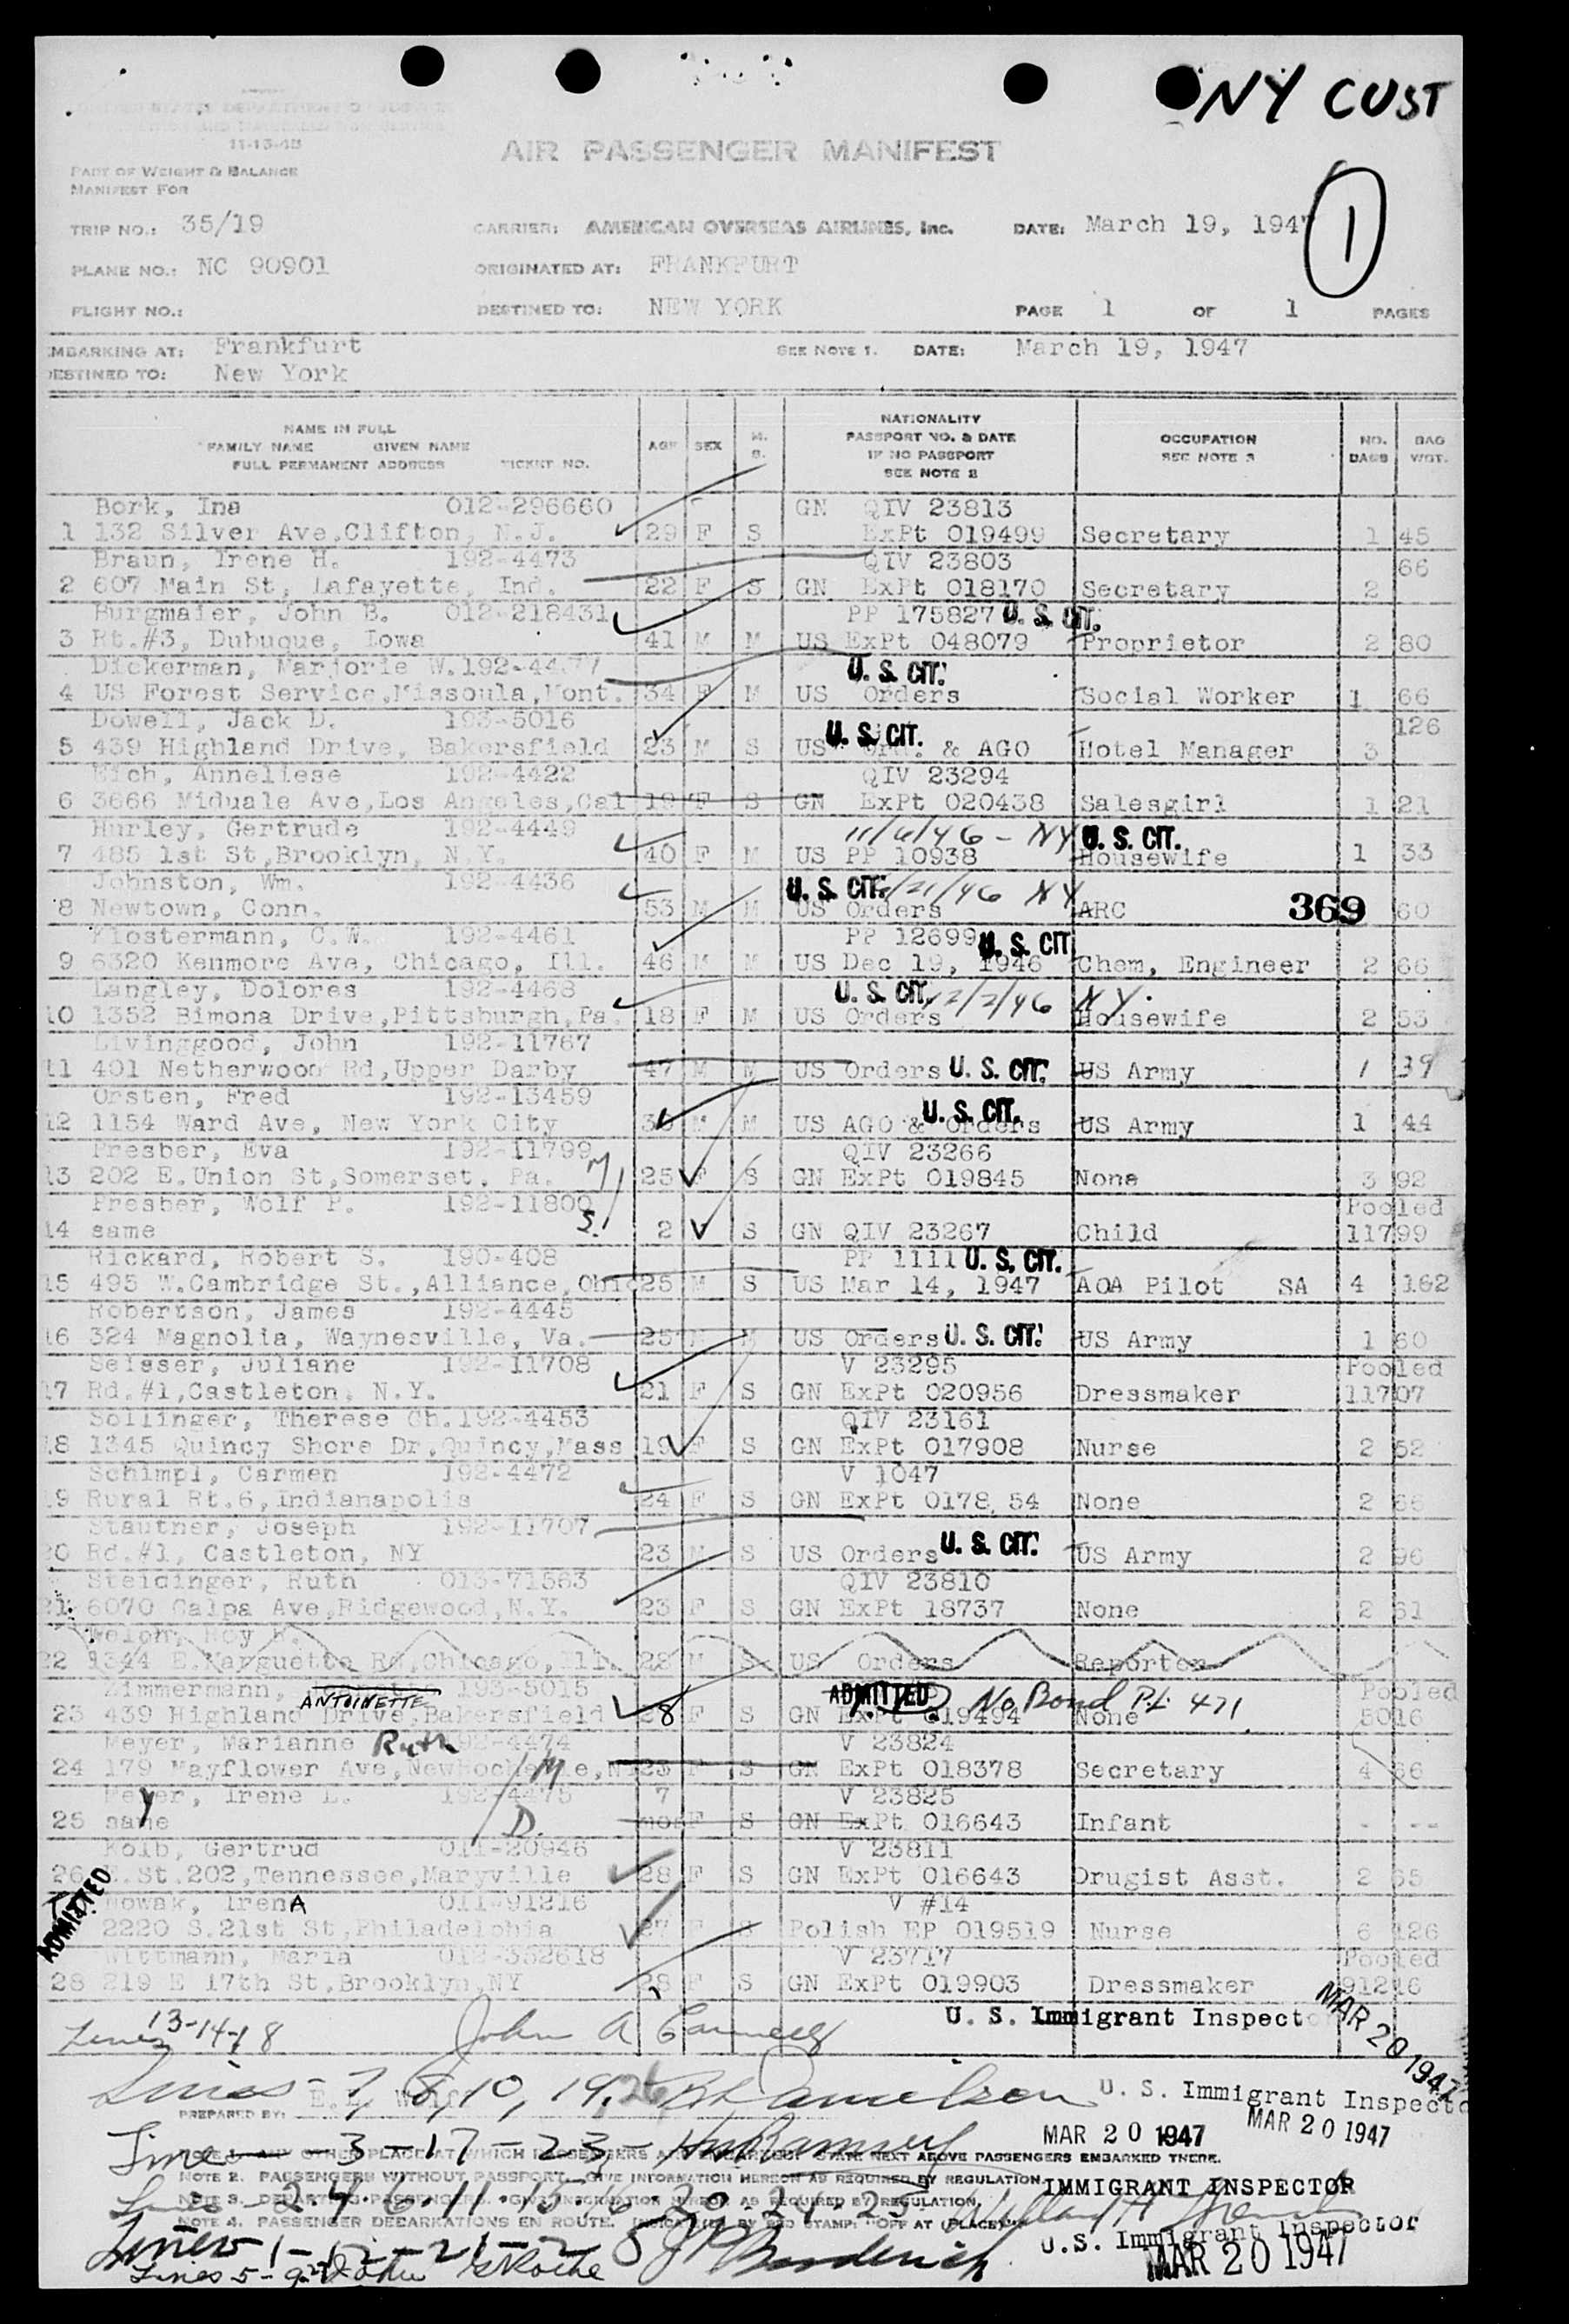 NY CUST
11-15-45
AIR PASSENGER MANIFEST
PART OF WEIGHT & BALANCE
MANIFEST FOR
1
TRIP NO.: 35/19 CARRIER: AMERICAN OVERSEAS AIRLINES, Inc. DATE: March 19, 1947
PLANE NO.: NC 90901 ORIGINATED AT: FRANKFURT
FLIGHT NO.: DESTINED TO: NEW YORK PAGE 1 OF 1 PAGES
EMBARKING AT: Frankfurt SEE NOTE 1. DATE: March 19, 1947
DESTINED TO: New York
NAME IN FULL
FAMILY NAME GIVEN NAME
FULL PERMANENT ADDRESS TICKET NO.
AGE SEX M. S.
NATIONALITY
PASSPORT NO. & DATE
IF NO PASSPORT
SEE NOTE 2
OCCUPATION
SEE NOTE 3
NO. BAGS
BAG WGT.
Bork, Ina 012-296660 GN QIV 23813
1 132 Silver Ave,Clifton, N.J. 29 F S ExPt 019499 Secretary 1 45
Braun, Irene H. 192-4473 QIV 23803 66
2 607 Main St, Lafayette, Ind. 22 F S GN ExPt 018170 Secretary 2
Burgmaier, John B. 012-218431 PP 175827 U. S. CIT.
3 Rt.#3, Dubuque, Iowa 41 M M US ExPt 048079 Proprietor 2 80
Dickerman, Marjorie W.192-4477 U. S. CIT.
4 US Forest Service,Missoula,Mont. 34 F M US Orders Social Worker 1 66
Dowell, Jack D. 193-5016 U. S. CIT. 126
5 439 Highland Drive, Bakersfield 23 M S US Ord. & AGO Hotel Manager 3
Eich, Anneliese 192-4422 QIV 23294
6 3666 Miduale Ave,Los Angeles,Cal 19 F S GN ExPt 020438 Salesgirl 1 21
Hurley, Gertrude 192-4449 11/6/46 - NY U. S. CIT.
7 485 1st St,Brooklyn, N.Y. 40 F M US PP 10938 Housewife 1 33
Johnston, Wm. 192-4436 U. S. CIT. /21/46 NY
8 Newtown, Conn. 53 M M US Orders ARC 369 60
Klostermann, C.W. 192-4461 PP 12699 U. S. CIT
9 6320 Kenmore Ave, Chicago, Ill. 46 M M US Dec 19, 1946 Chem, Engineer 2 66
Langley, Dolores 192-4468 U. S. CIT. 12/2/46 NY.
10 1352 Bimona Drive,Pittsburgh,Pa. 18 F M US Orders Housewife 2 53
Livinggood, John 192-11767
11 401 Netherwood Rd,Upper Darby 47 M M US Orders U. S. CIT. US Army 1 39
Orsten, Fred 192-13459 U. S. CIT.
12 1154 Ward Ave, New York City M M US AGO & Orders US Army 1 44
Presber, Eva 192-11799 M QIV 23266
13 202 E.Union St,Somerset, Pa. 25 F S GN ExPt 019845 None 3 92
Presber, Wolf P. 192-11800 S. Pooled
14 same 2 S GN QIV 23267 Child 11799
Rickard, Robert S. 190-408 PP 1111 U. S. CIT.
15 495 W.Cambridge St.,Alliance,Ohio 25 M S US Mar 14, 1947 AOA Pilot SA 4 162
Robertson, James 192-4445
16 324 Magnolia, Waynesville, Va. 25 M M US Orders U. S. CIT. US Army 1 60
Seisser, Juliane 192-11708 V 23295 Pooled
17 Rd.#1,Castleton, N.Y. 21 F S GN ExPt 020956 Dressmaker 11707
Sollinger, Therese Ch.192-4453 QIV 23161
18 1345 Quincy Shore Dr,Quincy,Mass 19 F S GN ExPt 017908 Nurse 2 52
Schimpl, Carmen 192-4472 V 1047
19 Rural Rt.6,Indianapolis 24 F S GN ExPt 0178 54 None 2 66
Stautner, Joseph 192-11707
20 Rd.#1, Castleton, NY 23 M S US Orders U. S. CIT. US Army 2 96
Steidinger, Ruth 013-71563 QIV 23810
21 6070 Calpa Ave,Ridgewood,N.Y. 23 F S GN ExPt 18737 None 2 61
Welch, Roy
22 1344 E.Marguetta Rd,Chicago,Ill. 28 M S US Orders Reporter
Zimmermann, ANTOINETTE 193-5015 ADMITTED No Bond P.L. 471 Pooled
23 439 Highland Drive,Bakersfield 28 F S GN ExPt 019494 None 5016
Meyer, Marianne Ruth 192-4474 V 23824
24 179 Mayflower Ave,NewRochelle,NY M 23 F S GN ExPt 018378 Secretary 4 66
Meyer, Irene L. 192-4475 7 V 23825
25 same D. mos F S GN ExPt 016643 Infant - --
Kolb, Gertrud 011-20946 V 23811
26 E.St.202,Tennessee,Maryville 28 F S GN ExPt 016643 Drugist Asst. 2 65
ADMITTED
Nowak, IrenA 011-91216 V #14
2220 S.21st St,Philadelphia 27 F S Polish EP 019519 Nurse 6 126
Wittmann, Maria 012-332618 V 23717 Pooled
28 219 E 17th St,Brooklyn,NY 28 F S GN ExPt 019903 Dressmaker 91216
Lines 13-14-18 John A U. S. Immigrant Inspector MAR 20 1947
Lines - 7, 8, 10, 19, 26 Danielson U. S. Immigrant Inspector
PREPARED BY: E. Wolf MAR 20 1947 MAR 20 1947
Line - 3 - 17 - 23 - Ramsey
NOTE 1. ANY OTHER PLACE AT WHICH PASSENGERS STATE NEXT ABOVE PASSENGERS EMBARKED THERE.
NOTE 2. PASSENGERS WITHOUT PASSPORT. GIVE INFORMATION HEREON AS REQUIRED BY REGULATION.
IMMIGRANT INSPECTOR
Line - 2.4.6.11.15.16.20.24.25
NOTE 3. DEPARTING PASSENGERS. GIVE INFORMATION HEREON AS REQUIRED BY REGULATION.
NOTE 4. PASSENGER DEBARKATIONS EN ROUTE. INDICATE BY RED STAMP: "OFF AT (PLACE)"
U.S. Immigrant Inspector
Lines - 1 - 12 - 21 - 28 MAR 20 1947
Lines 5-9 John Roche